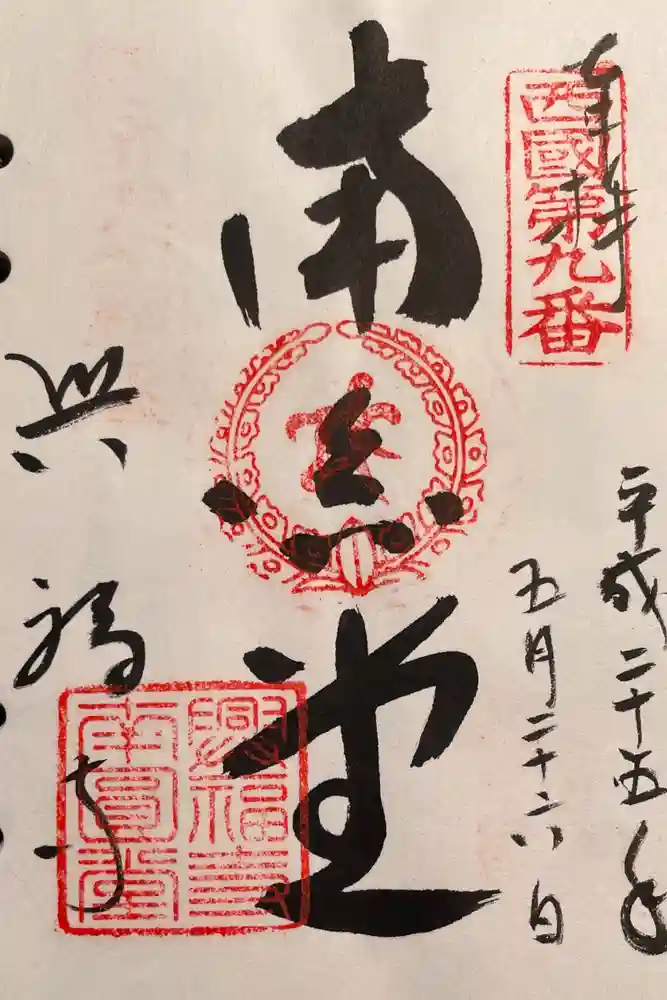 奉拝
西國第九番
平成二十五年
五月二十六日
南円堂
興福寺
興福寺
南圓堂